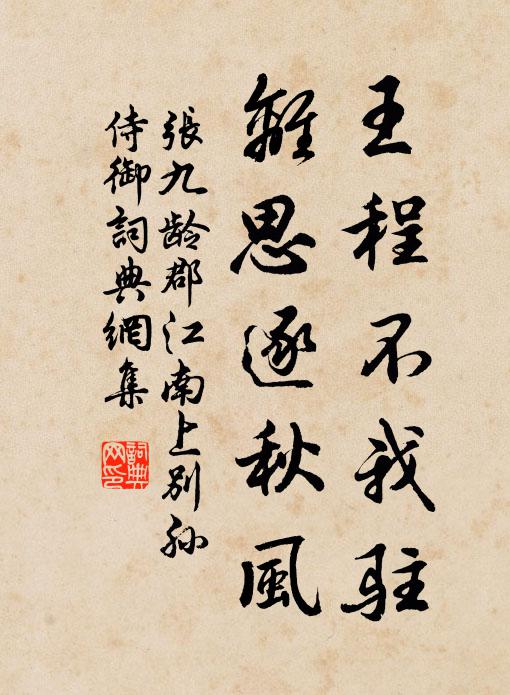 王程不我駐
離思逐秋風
張九龄郡江南上别孙
侍御詞典網集
詞典
网印